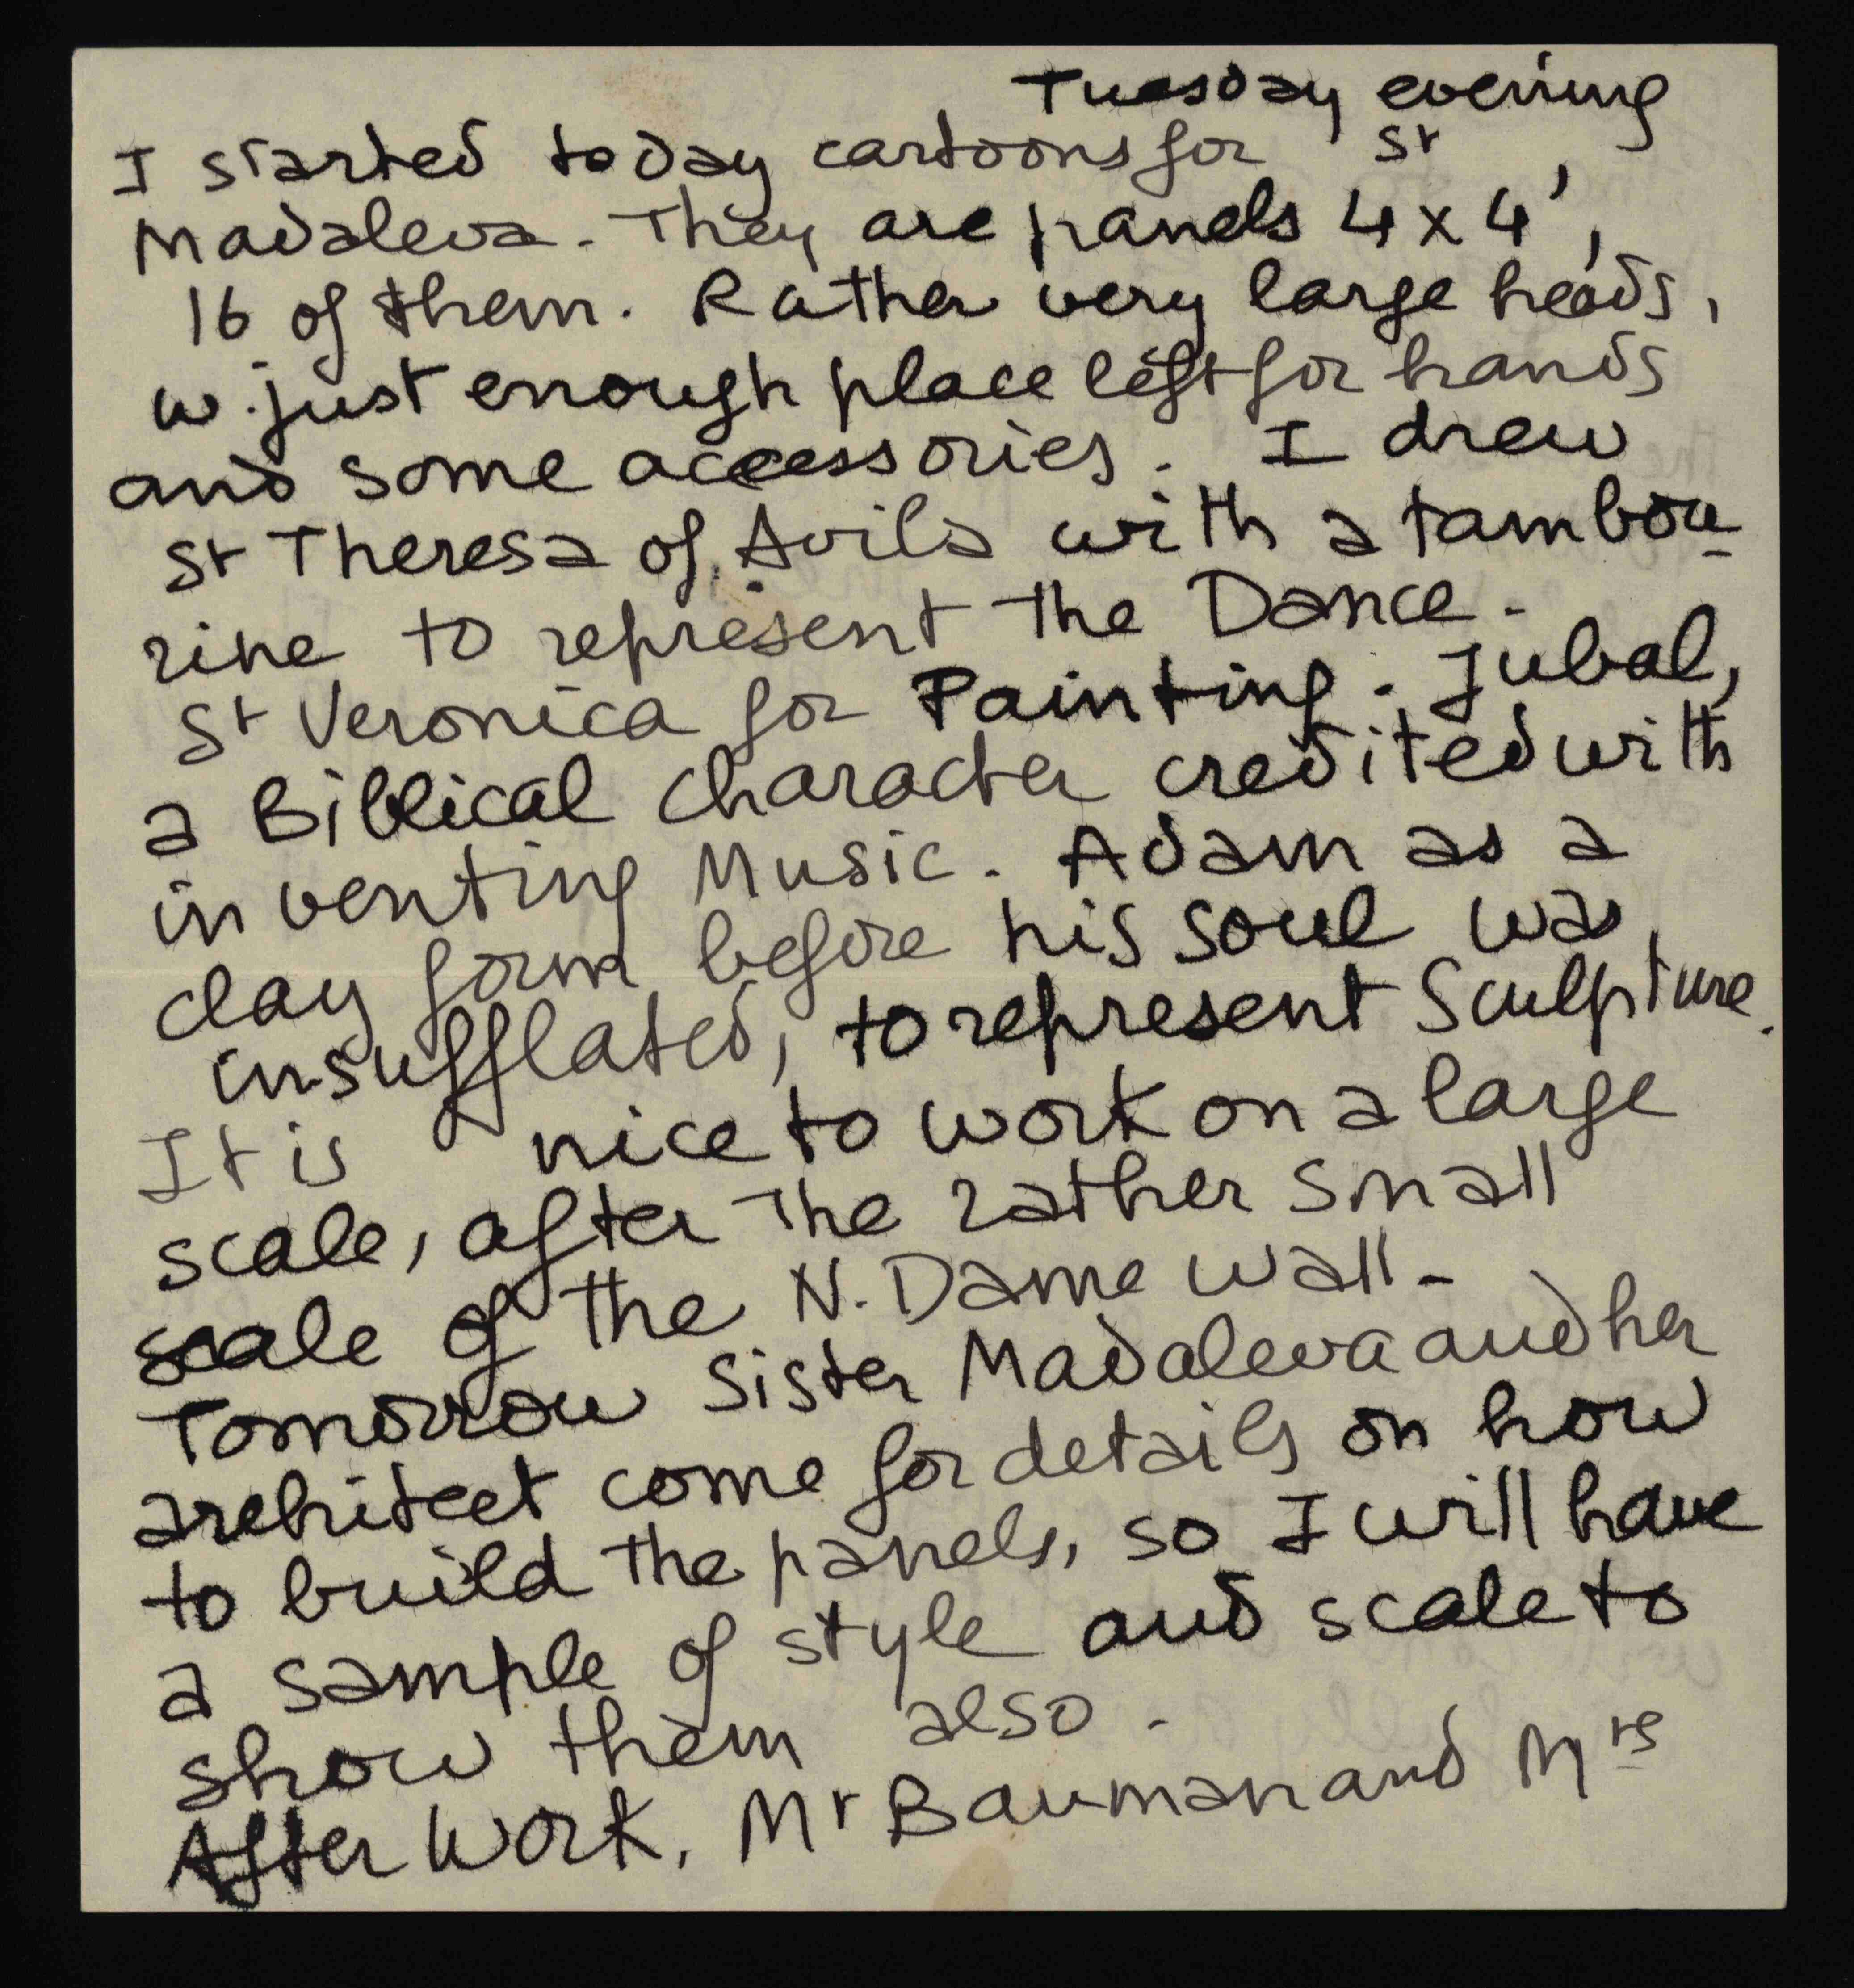 Tuesday evening
I started today cartoons for St
Madaleva. They are panels 4 x 4',
16 of them. Rather very large heads,
w. just enough place left for hands
and some accessories. I drew
St Theresa of Avila with a tambou-
rine to represent the Dance.
St Veronica for Painting. Jubal,
a Biblical character credited with
inventing Music. Adam as a
clay form before his soul was
insufflated, to represent Sculpture.
It is nice to work on a large
scale, after the rather small
scale of the N. Dame wall -
Tomorrow Sister Madaleva and her
architect come for details on how
to build the panels, so I will have
a sample of style and scale to
show them also -
After work, Mr Bauman and Mrs